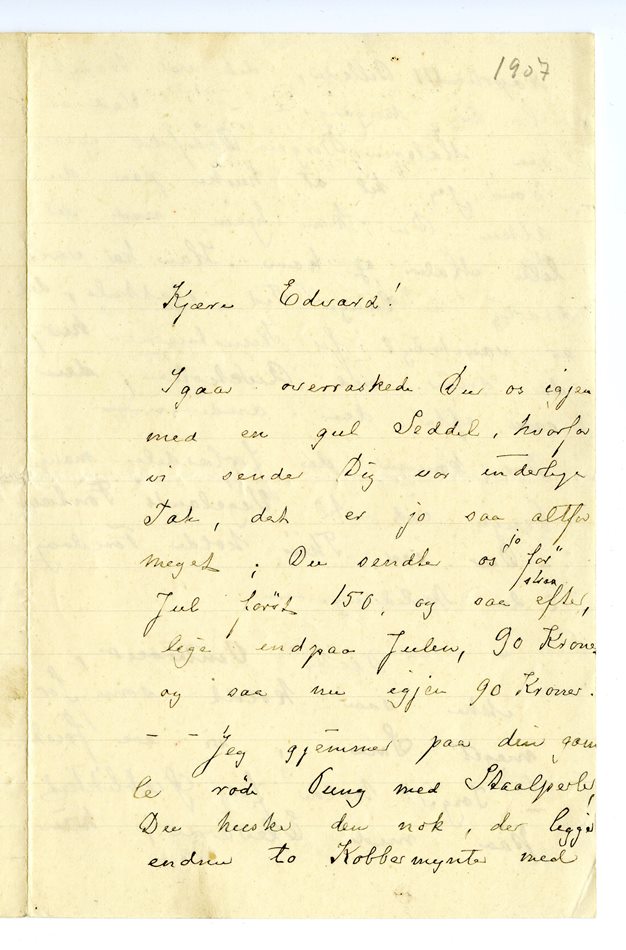 1907
Kjære Edvard!
Igaar overraskede Du os igjen
med en gul Seddel, hvorfor
vi sender Dig vor inderlige
Tak, det er jo saa altfor
meget; Du sendte os jo "før"
Jul først 150, og saa straa efter,
lige endpaa Julen, 90 Kroner
og saa nu igjen 90 Kroner.
– – Jeg gjemmer paa din gam
le røde Pung med Staalperler,
Du huske den nok, der ligger
endnu to Kobbermynte med